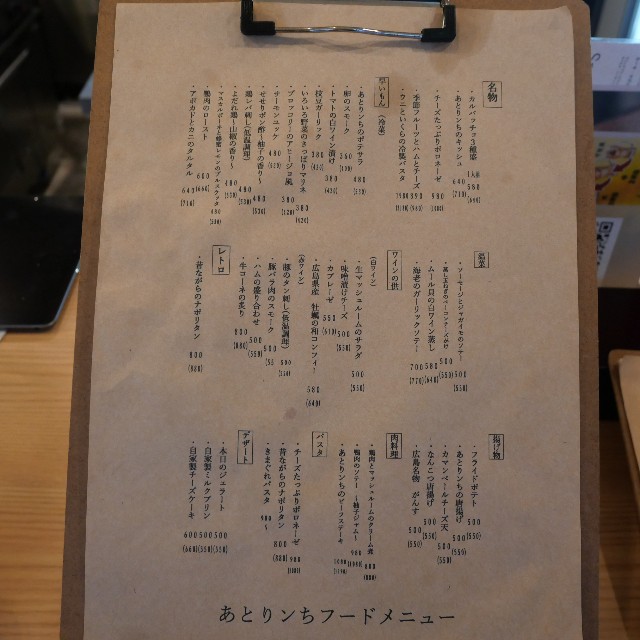 名物
・カルパッチョ3種盛 1人前 580 (640)
・あとりンちのキッシュ 640 (710)
・チーズたっぷりボロネーゼ 980 (1080)
・季節フルーツとハムとチーズ 890 (980)
・ウニといくらの冷製パスタ
早いもん (冷菜)
・あとりンちのポテサラ 480 (530)
・卵のスモーク 360
・トマトの白ワイン漬け 380 (420)
・枝豆ガーリック 380 (420)
・いろいろ野菜のさっぱりマリネ 380 (420)
・ブロッコリーのアヒージョ風 380
・サーモンユッケ 480 (530)
・せせりポン酢〜柚子の香り〜 480 (530)
・鶏レバ刺し(低温調理) 480 (530)
・よだれ鶏〜山椒の香り〜 490
・マスカルポーネと蜂蜜レモンのブルスケッタ 490
・鴨肉のロースト 600 (660)
・アボカドとカニのタルタル 640 (710)
温菜
・ソーセージとジャガイモのソテー 500 (550)
・ムール貝の白ワイン蒸し 580 (640)
・海老のガーリックソテー 700 (770)
ワインの供
(白ワイン)
・生マッシュルームのサラダ 500 (550)
・味噌漬けチーズ 500 (550)
・カプレーゼ 550 (610)
・広島県産 牡蠣の和コンフィー 580 (640)
(赤ワイン)
・豚のタン刺し(低温調理)
・豚バラ肉のスモーク 500
・ハムの盛り合わせ 500 (550)
・牛コーネの炙り 800 (880)
レトロ
・昔ながらのナポリタン 800 (880)
揚げ物
・フライドポテト 500 (550)
・あとりンちの唐揚げ 500 (550)
・カマンベールチーズ天 500 (550)
・なんこつ唐揚げ 500 (550)
・広島名物 がんす 500 (550)
肉料理
・鶏肉とマッシュルームのクリーム煮 800 (880)
・鴨肉のソテー 〜柚子ジャム〜
・あとりンちのビーフステーキ
パスタ
・チーズたっぷりボロネーゼ 980
・昔ながらのナポリタン 800 (880)
・きまぐれパスタ 980〜
デザート
・本日のジェラート 500 (550)
・自家製ミルクプリン 500 (550)
・自家製チーズケーキ 600 (660)
あとりンちフードメニュー